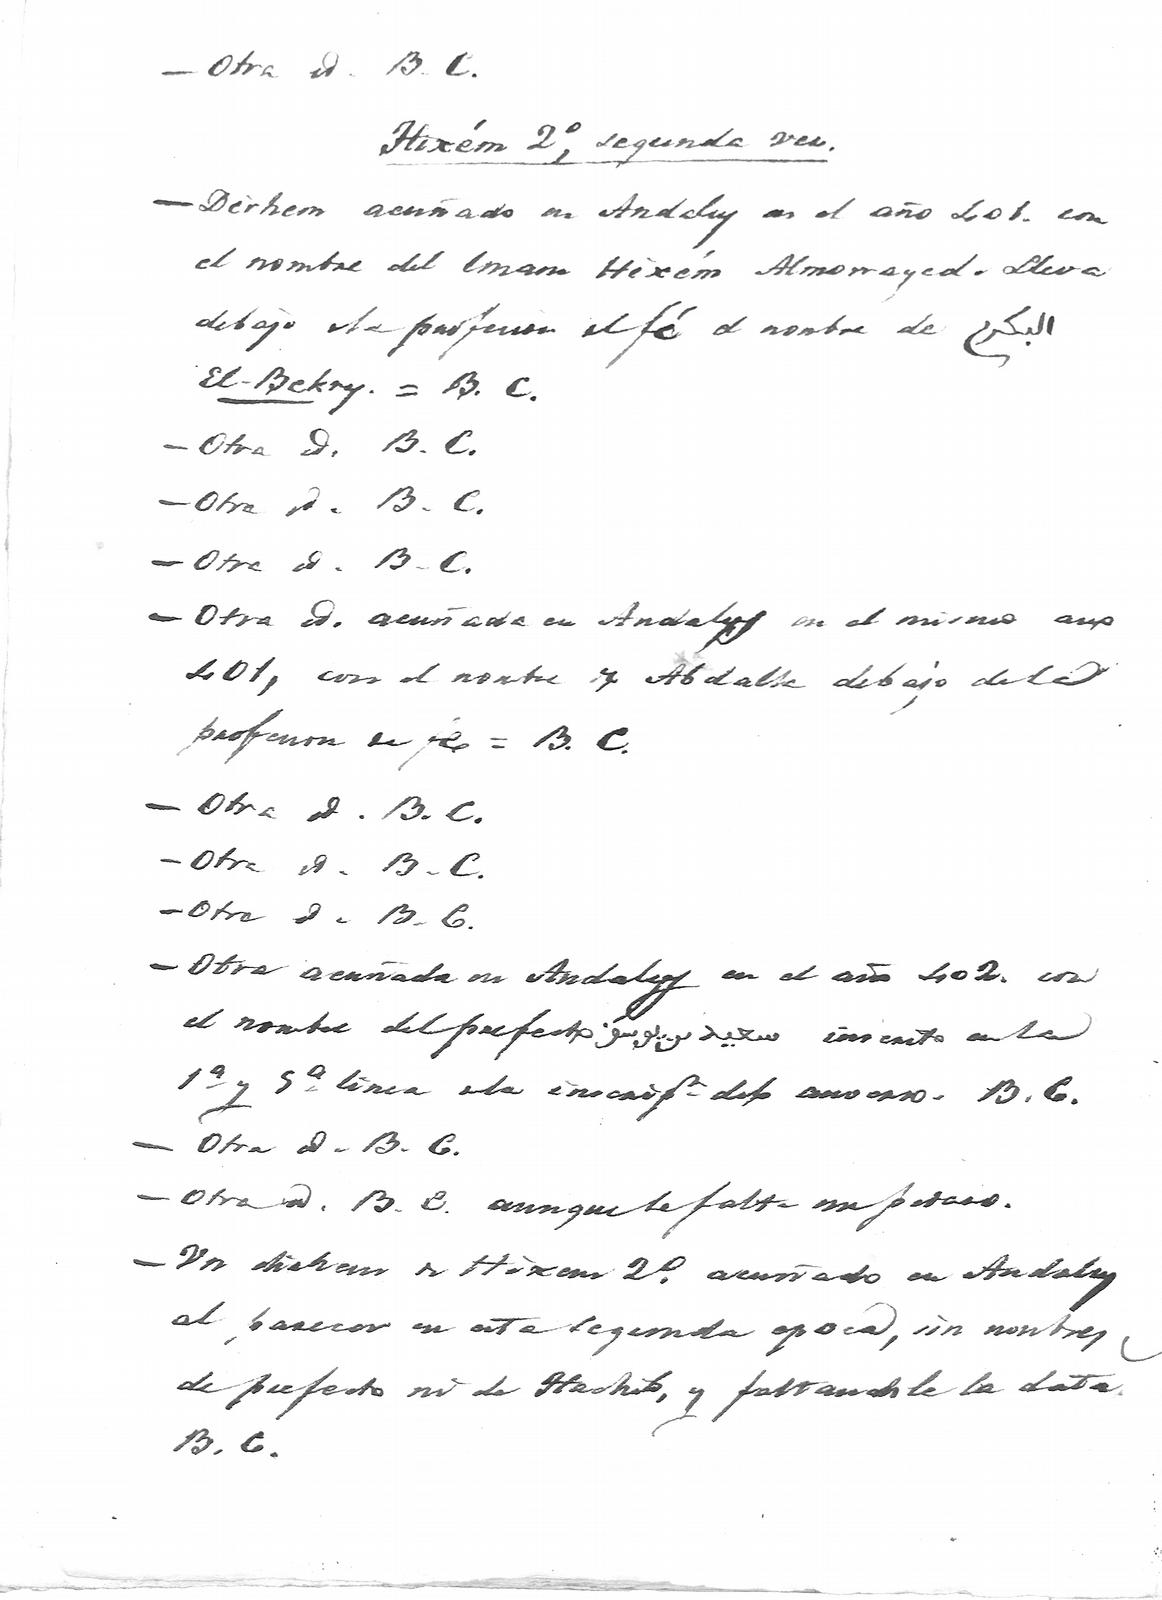 — Otra id. B. C.
Hixém 2º, segunda vez.
— Dirhem acuñado en Andaluz en el año 401. con
el nombre del Imam Hixém Almowayed. Lleva
debajo de la profesion de fé el nombre de البكري
El-Bekry. = B. C.
— Otra id. B. C.
— Otra id. B. C.
— Otra id. B. C.
— Otra id. acuñada en Andaluz en el mismo año
401, con el nombre de Abdalla debajo de la
profesion de fé = B. C.
— Otra id. B. C.
— Otra id. B. C.
— Otra id. B. C.
— Otra acuñada en Andaluz en el año 402. con
el nombre del prefecto سعيد بن يوسف inscrito en la
1ª y 5ª linea de la inscripn. del anverso. B. C.
— Otra id. B. C.
— Otra id. B. C. aunque le falta un pedazo.
— Un dirhem de Hixem 2º. acuñado en Andaluz
al parecer en esta segunda epoca, sin nombres
de prefecto ni de Hachib, y faltandole la data.
B. C.